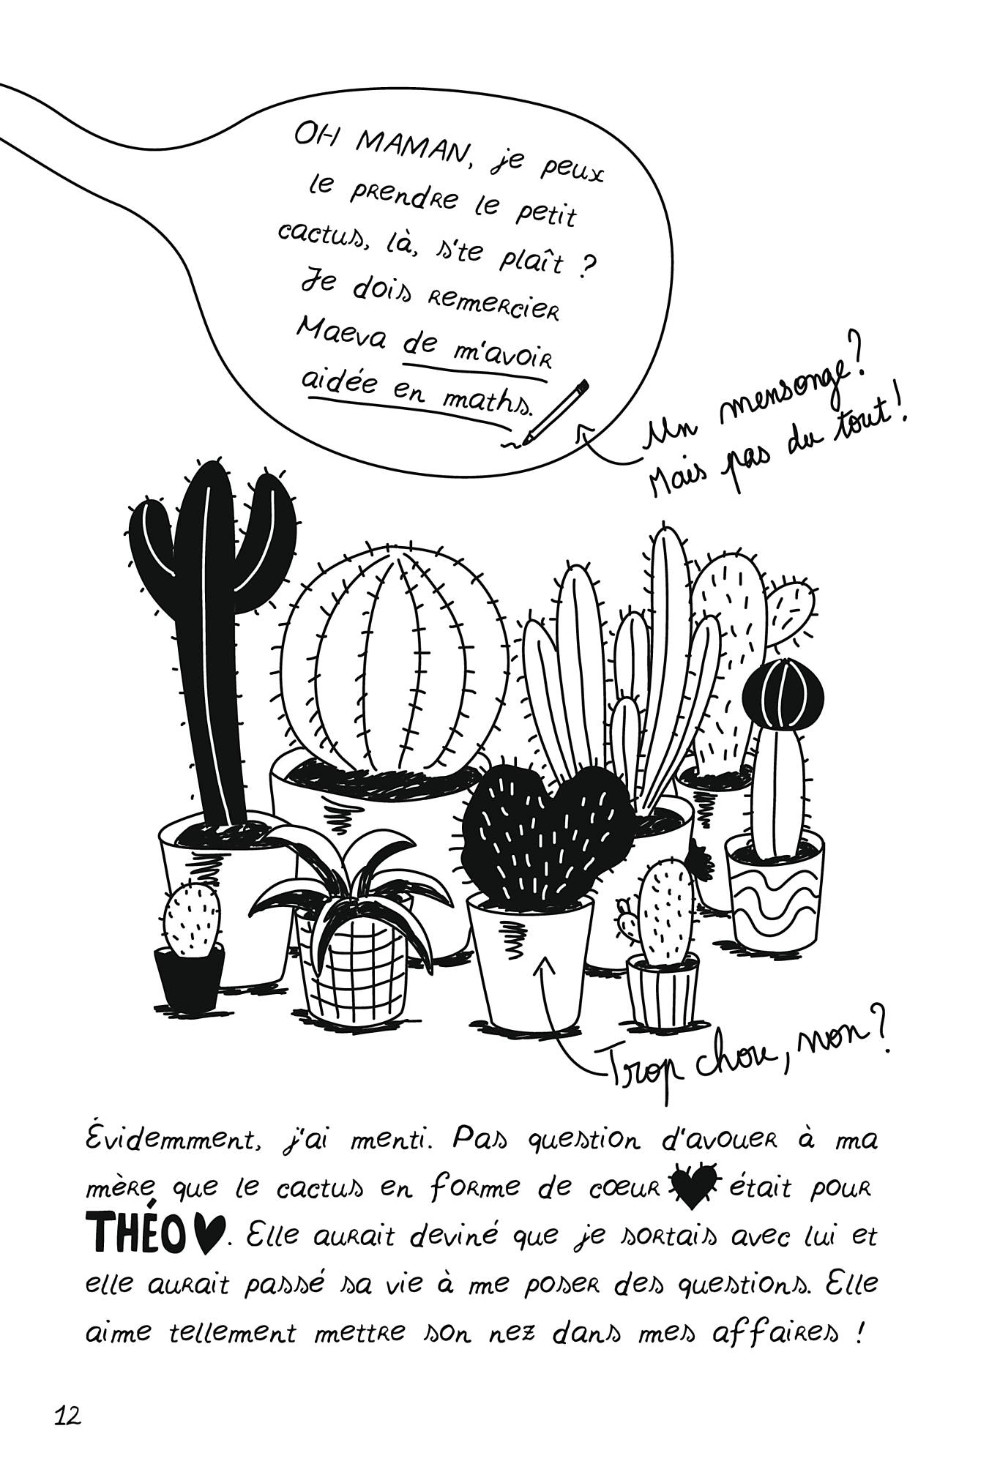 OH MAMAN, je peux
le prendre le petit
cactus, là, s'te plaît ?
Je dois remercier
Maeva de m'avoir
aidée en maths.
Un mensonge ?
Mais pas du tout !
Trop chou, non ?
Évidemment, j'ai menti. Pas question d'avouer à ma
mère que le cactus en forme de cœur était pour
THÉO. Elle aurait deviné que je sortais avec lui et
elle aurait passé sa vie à me poser des questions. Elle
aime tellement mettre son nez dans mes affaires !
12